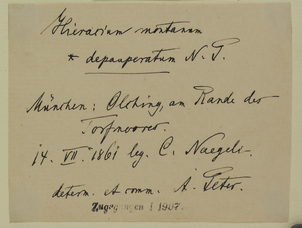 Hieracium montanum
* depauperatum N. P.
München: Olching, am Rande des
Torfmoores.
14. VII. 1861 leg. C. Naegeli.
determ. et comm. A. Peter.
Zugegangen 1907.